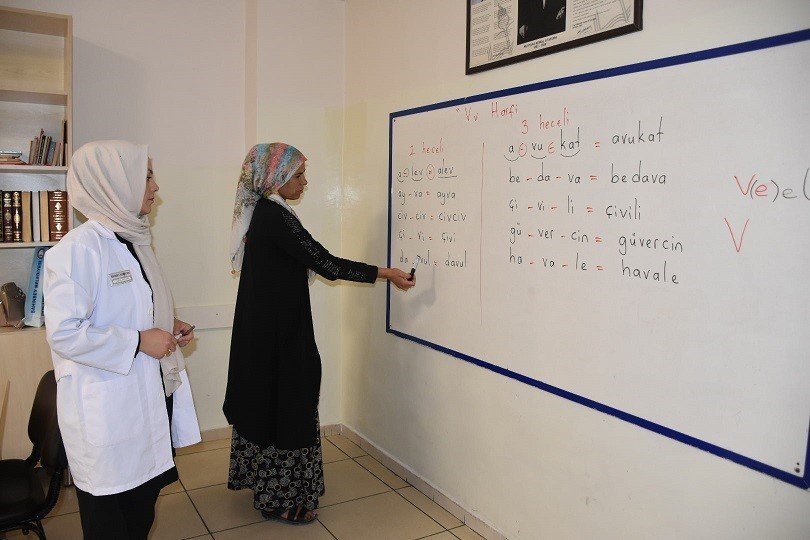 Vv Harfi
2 heceli
a lev = alev
ay - va = ayva
civ - civ = civciv
çi - vi = çivi
da - vul = davul
3 heceli
a vu kat = avukat
be - da - va = bedava
çi - vi - li = çivili
gü - ver - cin = güvercin
ha - va - le = havale
V(e)
V